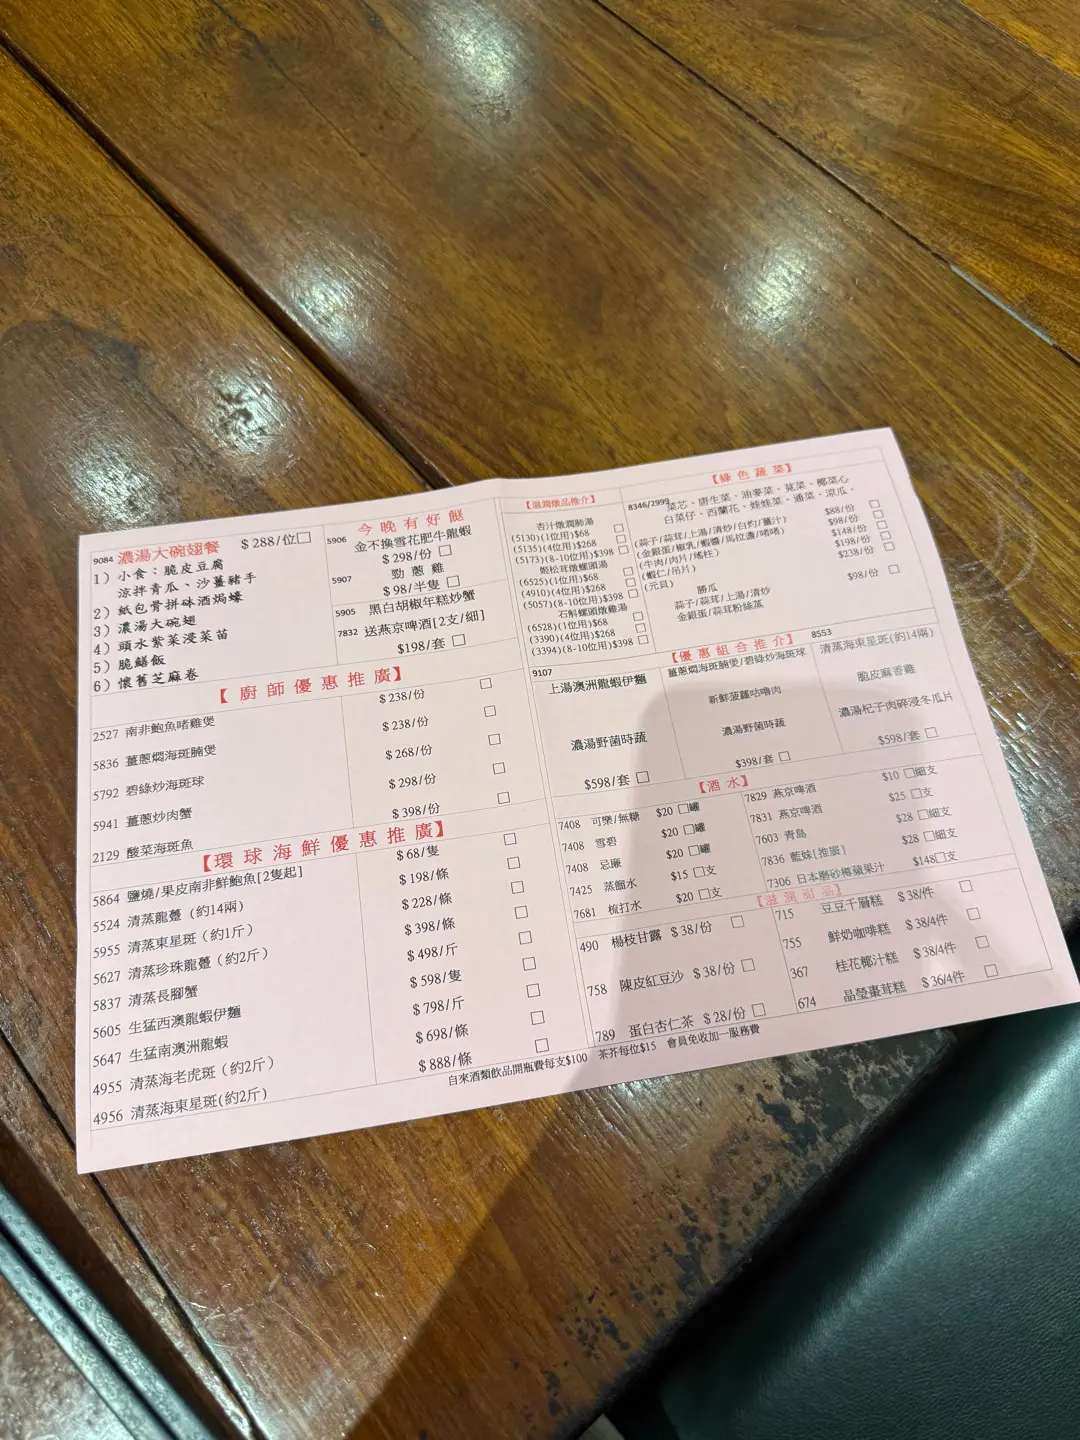 9084 濃湯大碗翅餐 $288/位□
1) 小食：脆皮豆腐
涼拌青瓜、沙薑豬手
2) 紙包骨拼砵酒焗蠔
3) 濃湯大碗翅
4) 頭水紫菜浸菜苗
5) 脆鱔飯
6) 懷舊芝麻卷
今晚有好餸
5906 金不換雪花肥牛龍蝦
$298/份 □
5907 勁蔥雞
$98/半隻 □
5905 黑白胡椒年糕炒蟹
7832 送燕京啤酒[2支/細]
$198/套 □
【廚師優惠推廣】
2527 南非鮑魚啫雞煲 $238/份 □
5836 薑蔥焗海斑腩煲 $238/份 □
5792 碧綠炒海斑球 $268/份 □
5941 薑蔥炒肉蟹 $298/份 □
2129 酸菜海斑魚 $398/份 □
【環球海鮮優惠推廣】
5864 鹽燒/果皮南非鮮鮑魚[2隻起] $68/隻 □
5524 清蒸龍躉 (約14兩) $198/條 □
5955 清蒸東星斑 (約1斤) $228/條 □
5627 清蒸珍珠龍躉 (約2斤) $398/條 □
5837 清蒸長腳蟹 $498/斤 □
5605 生猛西澳龍蝦伊麵 $598/隻 □
5647 生猛南澳洲龍蝦 $798/斤 □
4955 清蒸海老虎斑 (約2斤) $698/條 □
4956 清蒸海東星斑(約2斤) $888/條 □
【滋潤燉品推介】
杏汁燉潤肺湯
(5130)(1位用)$68 □
(5135)(4位用)$268 □
(5173)(8-10位用)$398 □
姬松茸燉螺頭湯
(6525)(1位用)$68 □
(4910)(4位用)$268 □
(5057)(8-10位用)$398 □
石斛螺頭燉雞湯
(6528)(1位用)$68 □
(3390)(4位用)$268 □
(3394)(8-10位用)$398 □
【綠色蔬菜】
8346/2999 菜芯、唐生菜、油麥菜、莧菜、椰菜心
白菜仔、西蘭花、娃娃菜、通菜、涼瓜、
(蒜子/蒜茸/上湯/清炒/白灼/薑汁) $88/份 □
(金銀蛋/椒乳/蝦醬/馬拉盞/啫啫) $98/份 □
(牛肉/肉片/瑤柱) $148/份 □
(蝦仁/吊片) $198/份 □
(元貝) $238/份 □
勝瓜 $98/份 □
蒜子/蒜茸/上湯/清炒
金銀蛋/蒜茸粉絲蒸
【優惠組合推介】
9107
上湯澳洲龍蝦伊麵
濃湯野菌時蔬
$598/套 □
薑蔥焗海斑腩煲/碧綠炒海斑球
新鮮菠蘿咕嚕肉
濃湯野菌時蔬
$398/套 □
8553
清蒸海東星斑(約14兩)
脆皮麻香雞
濃湯杞子肉碎浸冬瓜片
$598/套 □
【酒水】
7408 可樂/無糖 $20 □罐
7408 雪碧 $20 □罐
7408 忌廉 $20 □罐
7425 蒸餾水 $15 □支
7681 梳打水 $20 □支
7829 燕京啤酒 $10 □細支
7831 燕京啤酒 $25 □支
7603 青島 $28 □細支
7836 藍妹[推廣] $28 □細支
7306 日本磨砂樽蘋果汁 $148□支
【滋潤甜品】
490 楊枝甘露 $38/份 □
758 陳皮紅豆沙 $38/份 □
789 蛋白杏仁茶 $28/份 □
715 豆豆千層糕 $38/件 □
755 鮮奶咖啡糕 $38/4件 □
367 桂花椰汁糕 $38/4件 □
674 晶瑩棗茸糕 $36/4件 □
自來酒類飲品開瓶費每支$100 茶芥每位$15 會員免收加一服務費